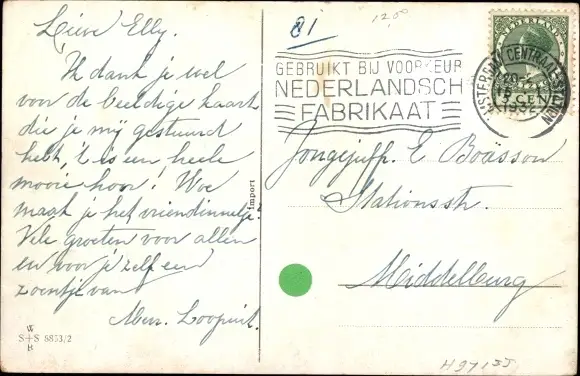 Lieve Elly.
'Ik dank je wel
voor de beeldige kaart
die je mij gestuurd
hebt, 't is een heele
mooie hoor! Hoe
maak je het vriendinnetje?
Vele groeten voor allen
en voor je zelf een
zoentje van
Mevr.
W
S+S 8853/2
B
import
81
12,00
GEBRUIKT BIJ VOORKEUR
NEDERLANDSCH
FABRIKAAT
NEDERLAND
AMSTERDAM CENTRAAL STATION
Jongejuffr. E Boässon
Stationsstr.
Middelburg